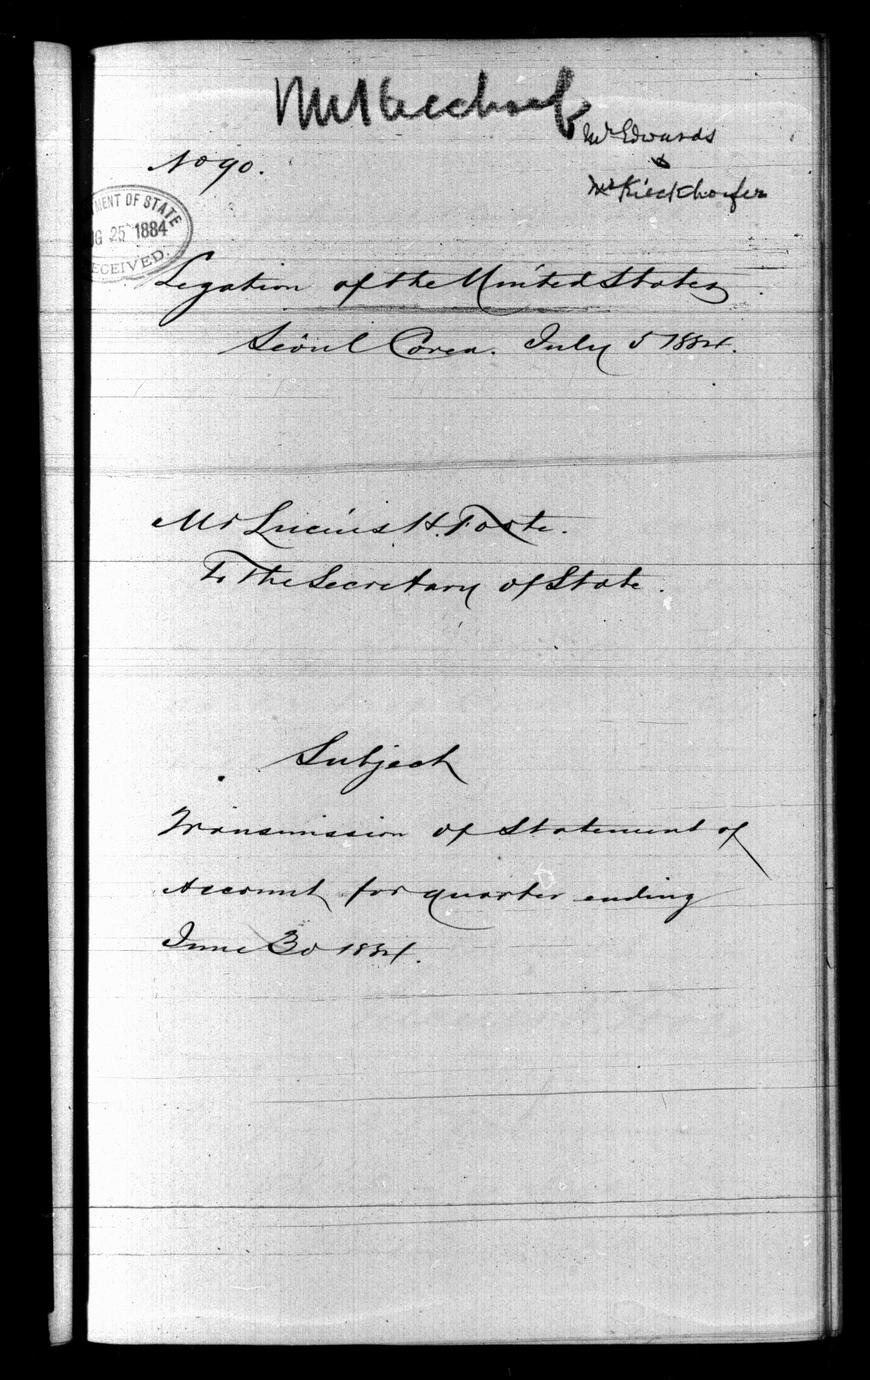 Mr Kieckhoef
Mr Edwards
&
Mr Kieckhoefer
No 90.
MENT OF STATE
UG 25 1884
RECEIVED.
Legation of the United States
Séoul Corea. July 5 1884.
Mr Lucius H. Foote.
To The Secretary of State.
Subject
Transmission of Statement of
Account for quarter ending
June 30 1884.